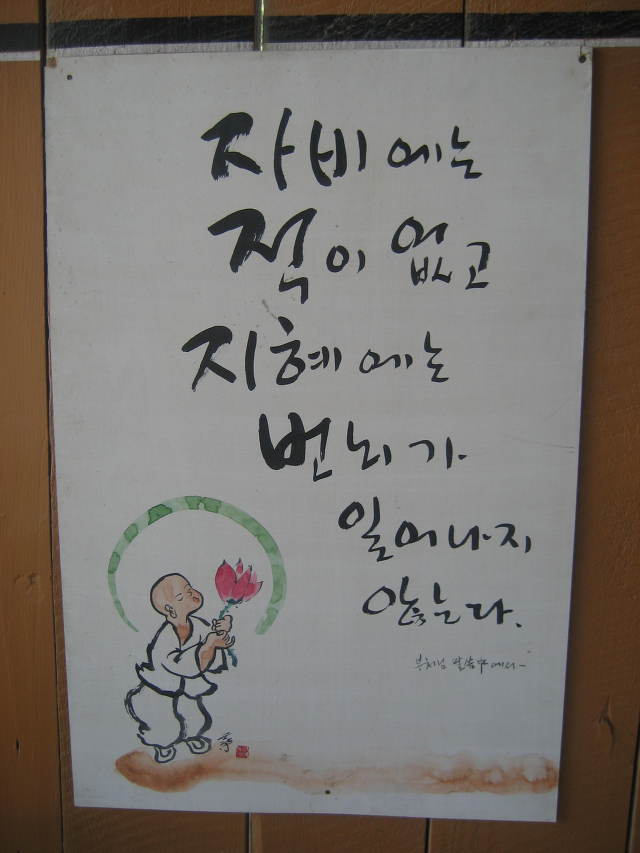 자비에는
적이 없고
지혜에는
번뇌가
일어나지
않는다.
부처님 말씀中에서-